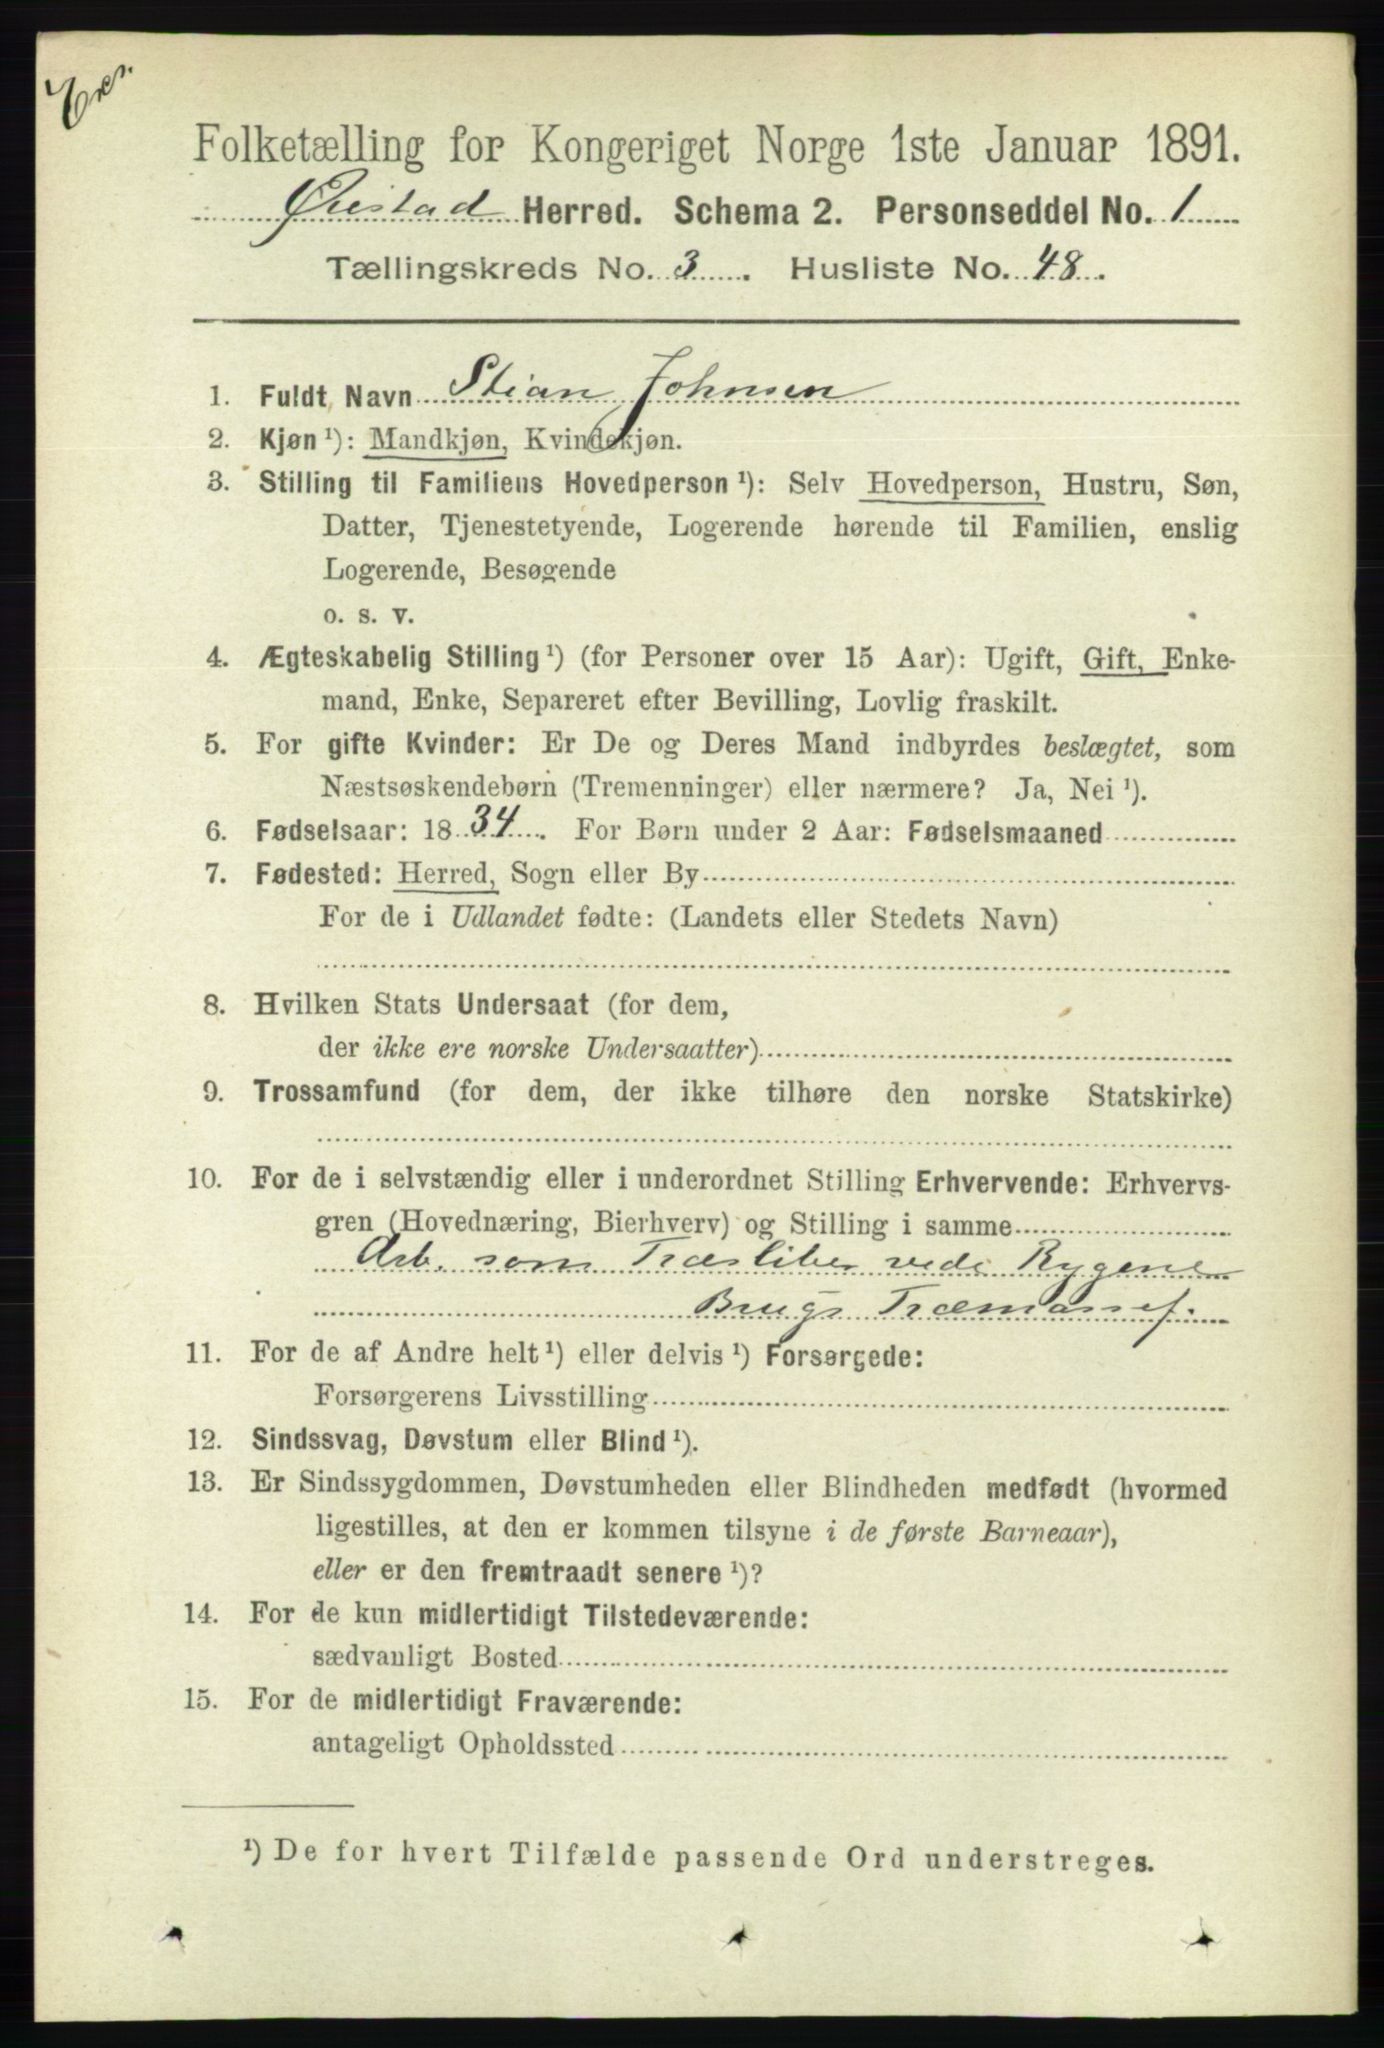 Folketælling for Kongeriget Norge 1ste Januar 1891.
Øiestad Herred. Schema 2. Personseddel No. 1
Tællingskreds No. 3. Husliste No. 48.
1. Fuldt Navn Stian Johnsen
2. Kjøn ¹): Mandkjøn, Kvindekjøn.
3. Stilling til Familiens Hovedperson ¹): Selv Hovedperson, Hustru, Søn,
Datter, Tjenestetyende, Logerende hørende til Familien, enslig
Logerende, Besøgende
o. s. v.
4. Ægteskabelig Stilling ¹) (for Personer over 15 Aar): Ugift, Gift, Enke-
mand, Enke, Separeret efter Bevilling, Lovlig fraskilt.
5. For gifte Kvinder: Er De og Deres Mand indbyrdes beslægtet, som
Næstsøskendebørn (Tremenninger) eller nærmere? Ja, Nei ¹).
6. Fødselsaar: 1834. For Børn under 2 Aar: Fødselsmaaned
7. Fødested: Herred, Sogn eller By
For de i Udlandet fødte: (Landets eller Stedets Navn)
8. Hvilken Stats Undersaat (for dem,
der ikke ere norske Undersaatter)
9. Trossamfund (for dem, der ikke tilhøre den norske Statskirke)
10. For de i selvstændig eller i underordnet Stilling Erhvervende: Erhvervs-
gren (Hovednæring, Bierhverv) og Stilling i samme
Arb. som Træsliber vede Rygene
Brugs Træmassef.
11. For de af Andre helt ¹) eller delvis ¹) Forsørgede:
Forsørgerens Livsstilling
12. Sindssvag, Døvstum eller Blind ¹).
13. Er Sindssygdommen, Døvstumheden eller Blindheden medfødt (hvormed
ligestilles, at den er kommen tilsyne i de første Barneaar),
eller er den fremtraadt senere ¹)?
14. For de kun midlertidigt Tilstedeværende:
sædvanligt Bosted
15. For de midlertidigt Fraværende:
antageligt Opholdssted
¹) De for hvert Tilfælde passende Ord understreges.